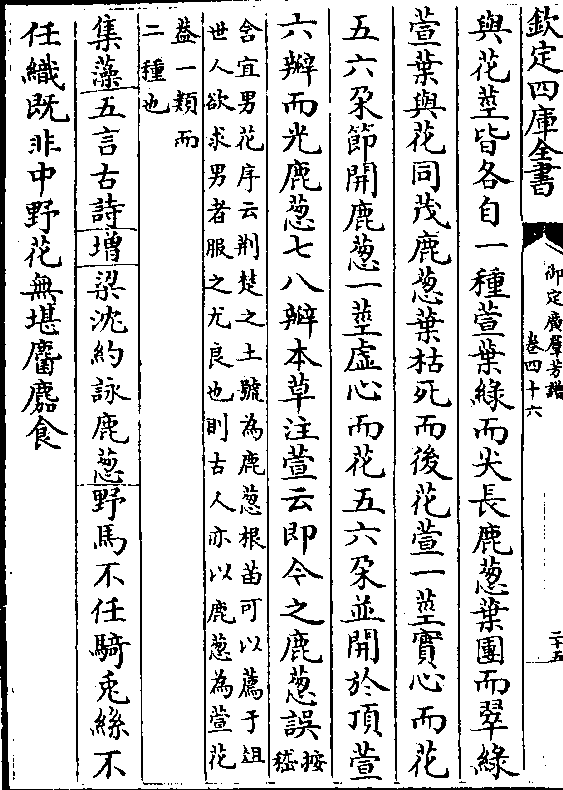 欽定四庫全書
御定廣羣芳譜
卷四十六
二十五
與花莖皆各自一種萱葉綠而尖長鹿葱葉團而翠綠
萱葉與花同茂鹿葱葉枯死而後花萱一莖實心而花
五六朶節開鹿葱一莖虚心而花五六朶並開於頂萱
六瓣而光鹿葱七八瓣本草注萱云即今之鹿葱誤按嵇
含宜男花序云荆楚之土號為鹿葱根苗可以薦于俎
世人欲求男者服之尤良也則古人亦以鹿葱為萱花
葢一類而
二種也
集藻五言古詩増梁沈約詠鹿葱野馬不任騎兎絲不
任織既非中野花無堪麕麚食